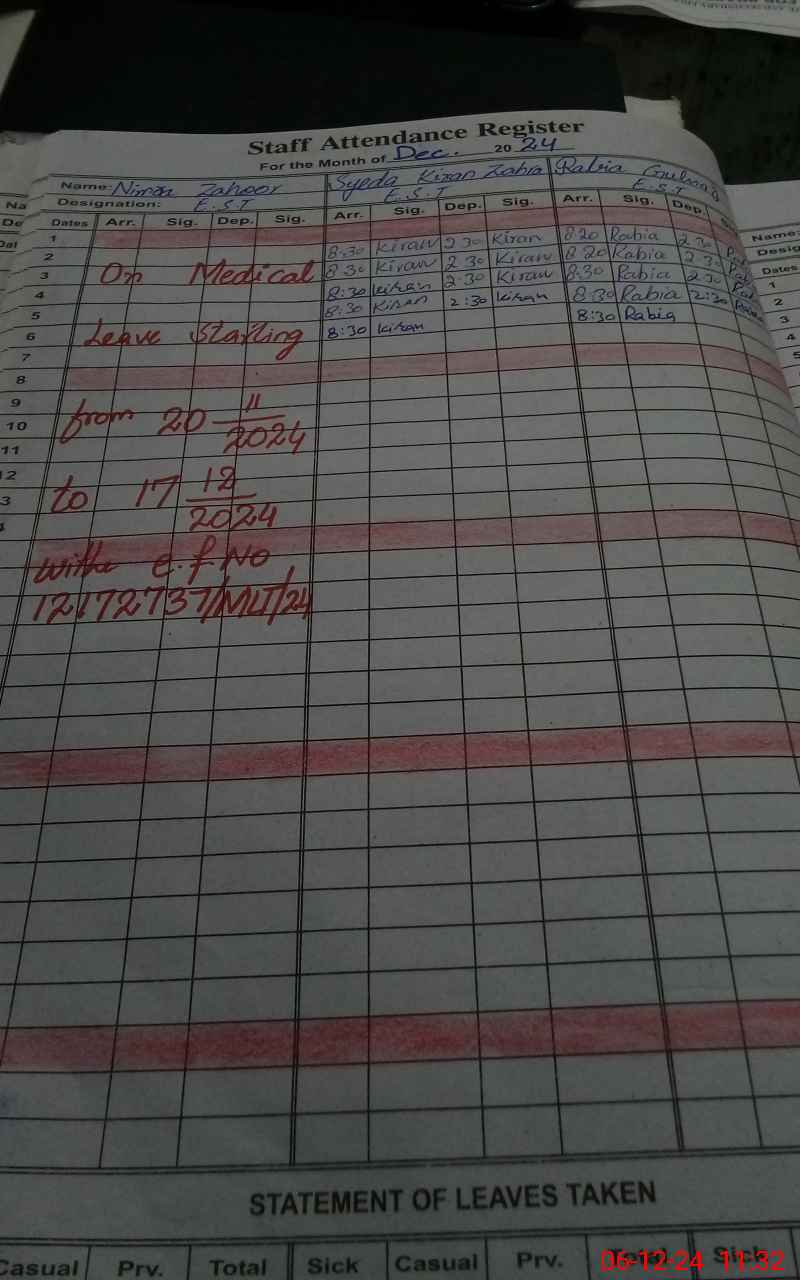 Staff Attendance Register
For the Month of Dec. 20 24
Name: Zahoor Syeda Kiran Zahra Rabia
Designation: E.S.T E.S.T E.S.T
Dates Arr. Sig. Dep. Sig. Arr. Sig. Dep. Sig. Arr. Sig. Dep.
1
2 8:30 Kiran 2 30 Kiran 8 20 Rabia 2 30
3 8 30 Kiran 2 30 Kiran 8 20 Rabia 2 30
4 8:30 Kiran 2:30 Kiran 8:30 Rabia 2 30
5 8:30 Kiran 2:30 Kiran 8:30 Rabia 2:30
6 8:30 Kiran 8:30 Rabia
On Medical
Leave Starting
7
8
9
10
11
from 20 11
2024
to 17 12
2024
with e.f No
12172737/MLT/24
STATEMENT OF LEAVES TAKEN
Casual Prv. Total Sick Casual Prv. Total Sick
06-12-24 11:32
Name:
Dates
1
2
3
4